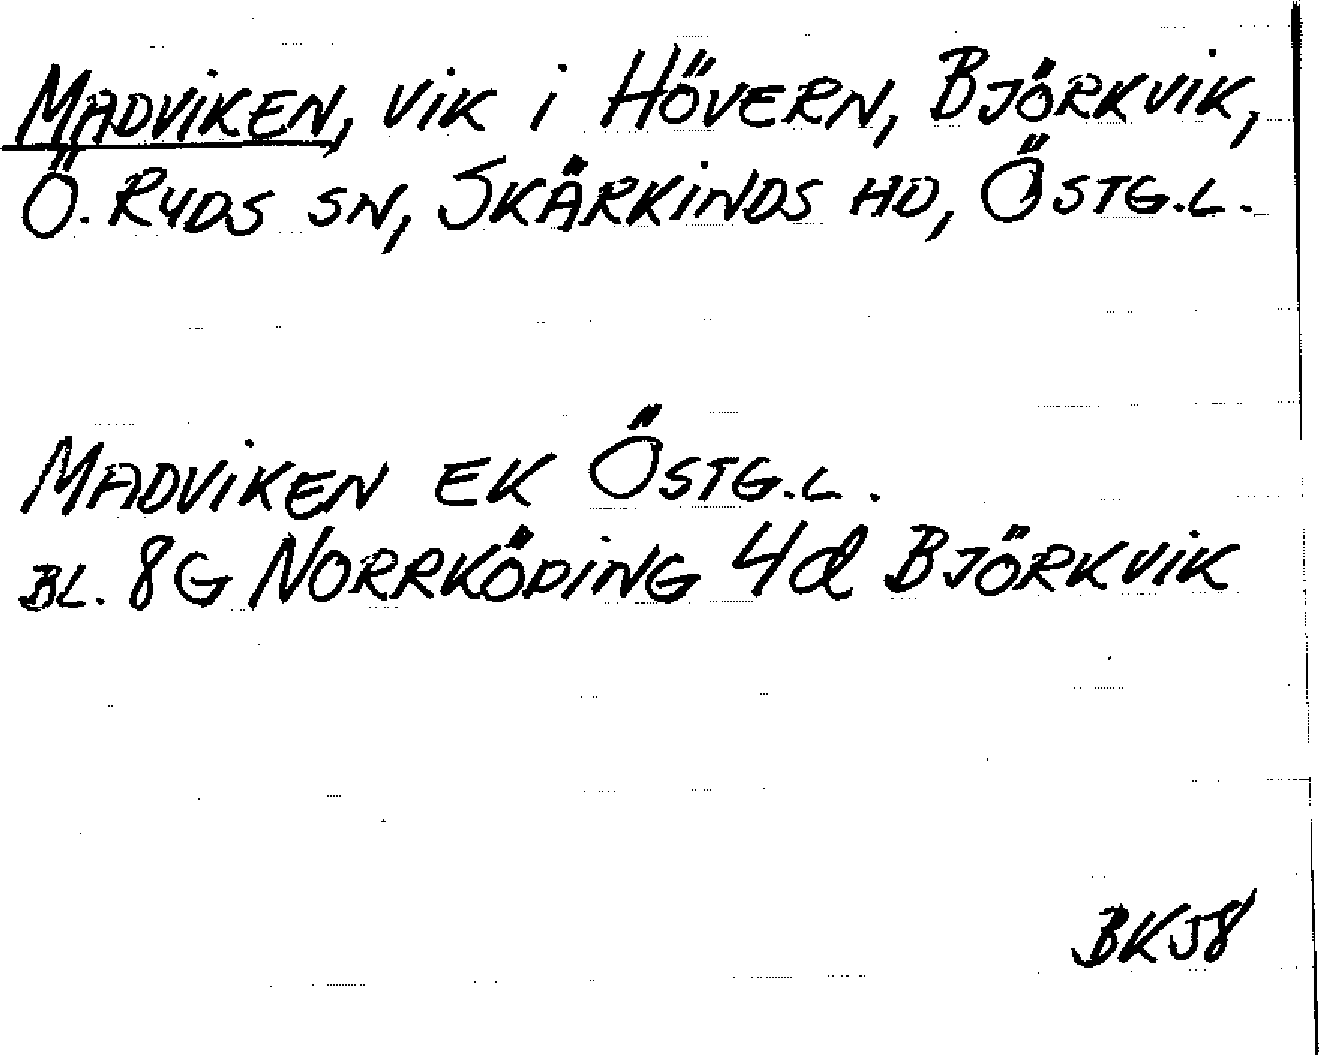 MADVIKEN, VIK I HÖVERN, BJÖRKVIK,
Ö. RYDS SN, SKÄRKINDS HD, ÖSTG.L.
MADVIKEN EK ÖSTG.L.
BL. 8G NORRKÖPING 4d BJÖRKVIK
BKJ8